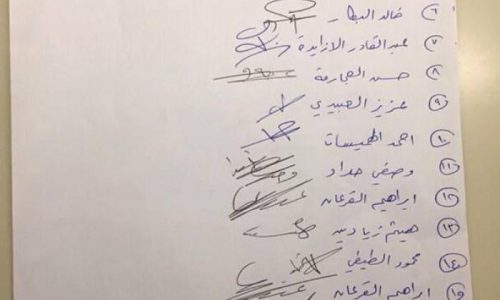 ٦ خالد البطار
٧ عبدالقادر الازايدة
٨ حسن العجارمة
٩ عزيز العبيدي
١٠ احمد الهميسات
١١ وصفي حداد
١٢ ابراهيم القرعان
١٣ هيثم زيادين
١٤ محمود الطيطي
١٥ ابراهيم القرعان